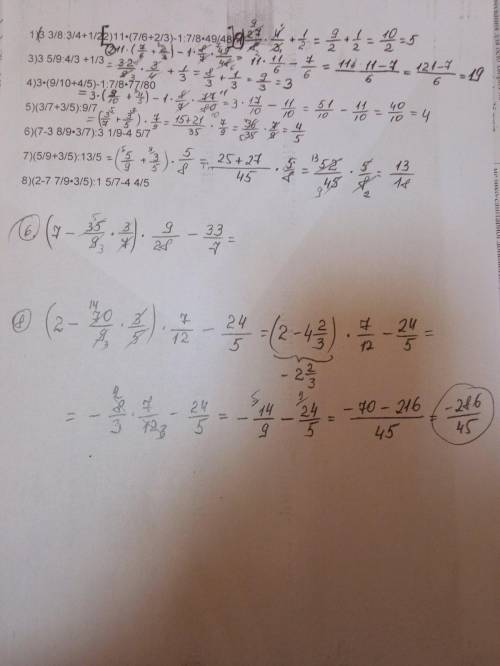 1)(3 3/8:3/4+1/2 = 27/8 · 4/3 + 1/2 = 9/2 + 1/2 = 10/2 = 5
2)11•(7/6+2/3)-1:7/8•49/48
3)3 5/9:4/3 +1/3 = 32/9 · 3/4 + 1/3 = 8/3 + 1/3 = 9/3 = 3
4)3•(9/10+4/5)-1:7/8•77/80
= 3 · 17/10 - 11/10 = 51/10 - 11/10 = 40/10 = 4
5)(3/7+3/5):9/7
= (3/7 + 3/5) · 7/9 = 15+21/35 · 7/9 = 36/35 · 7/9 = 4/5
6)(7-3 8/9•3/7):3 1/9-4 5/7
7)(5/9+3/5):13/5 = (5/9 + 3/5) · 5/8 = 25+27/45 · 5/8 = 52/45 · 5/8 = 13/18
8)(2-7 7/9•3/5):1 5/7-4 4/5
6. (7 - 35/9 · 3/7) · 9/28 - 33/7 =
8 (2 - 70/9 · 3/5) · 7/12 - 24/5 = (2 - 4 2/3) · 7/12 - 24/5 =
- 2 2/3
= - 8/3 · 7/12 - 24/5 = - 14/9 - 24/5 = -70 - 216/45 = -286/45